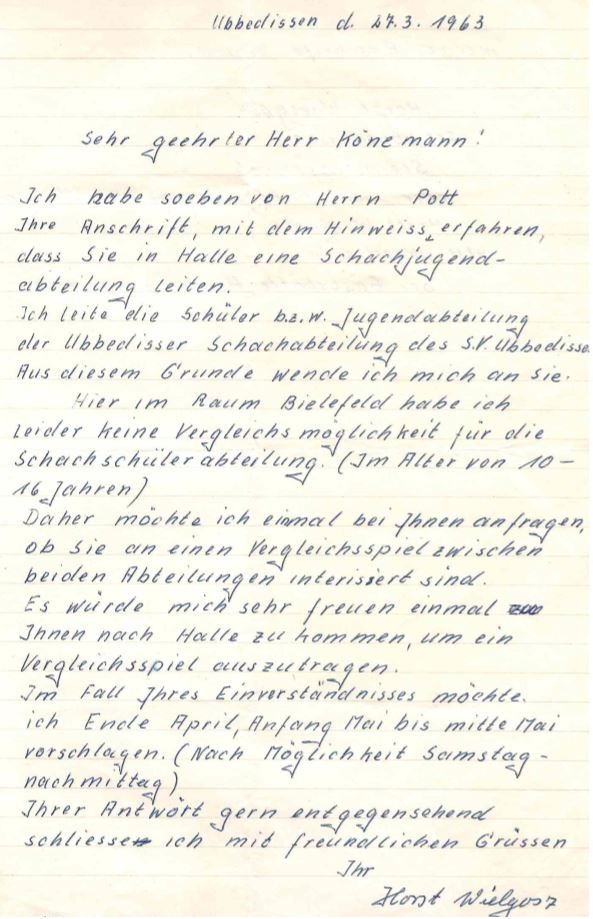 Ubbedissen d. 27.3.1963
Sehr geehrter Herr Könemann!
Ich habe soeben von Herrn Pott
Ihre Anschrift, mit dem Hinweiss, erfahren,
dass Sie in Halle eine Schachjugend-
abteilung leiten.
Ich leite die Schüler b.z.w. Jugendabteilung
der Ubbedisser Schachabteilung des S.V. Ubbedisse
Aus diesem Grunde wende ich mich an Sie.
Hier im Raum Bielefeld habe ich
leider keine Vergleichsmöglichkeit für die
Schachschülerabteilung. (Im Alter von 10-
16 Jahren)
Daher möchte ich einmal bei Ihnen anfragen,
ob Sie an einen Vergleichsspiel zwischen
beiden Abteilungen interissiert sind.
Es würde mich sehr freuen einmal zu
Ihnen nach Halle zu kommen, um ein
Vergleichsspiel auszutragen.
Im Fall Ihres Einverständnisses möchte
ich Ende April, Anfang Mai bis mitte Mai
vorschlagen. (Nach Möglichkeit Samstag-
nachmittag)
Ihrer Antwort gern entgegensehend
schliesse ich mit freundlichen Grüssen
Ihr
Horst Wielgosz